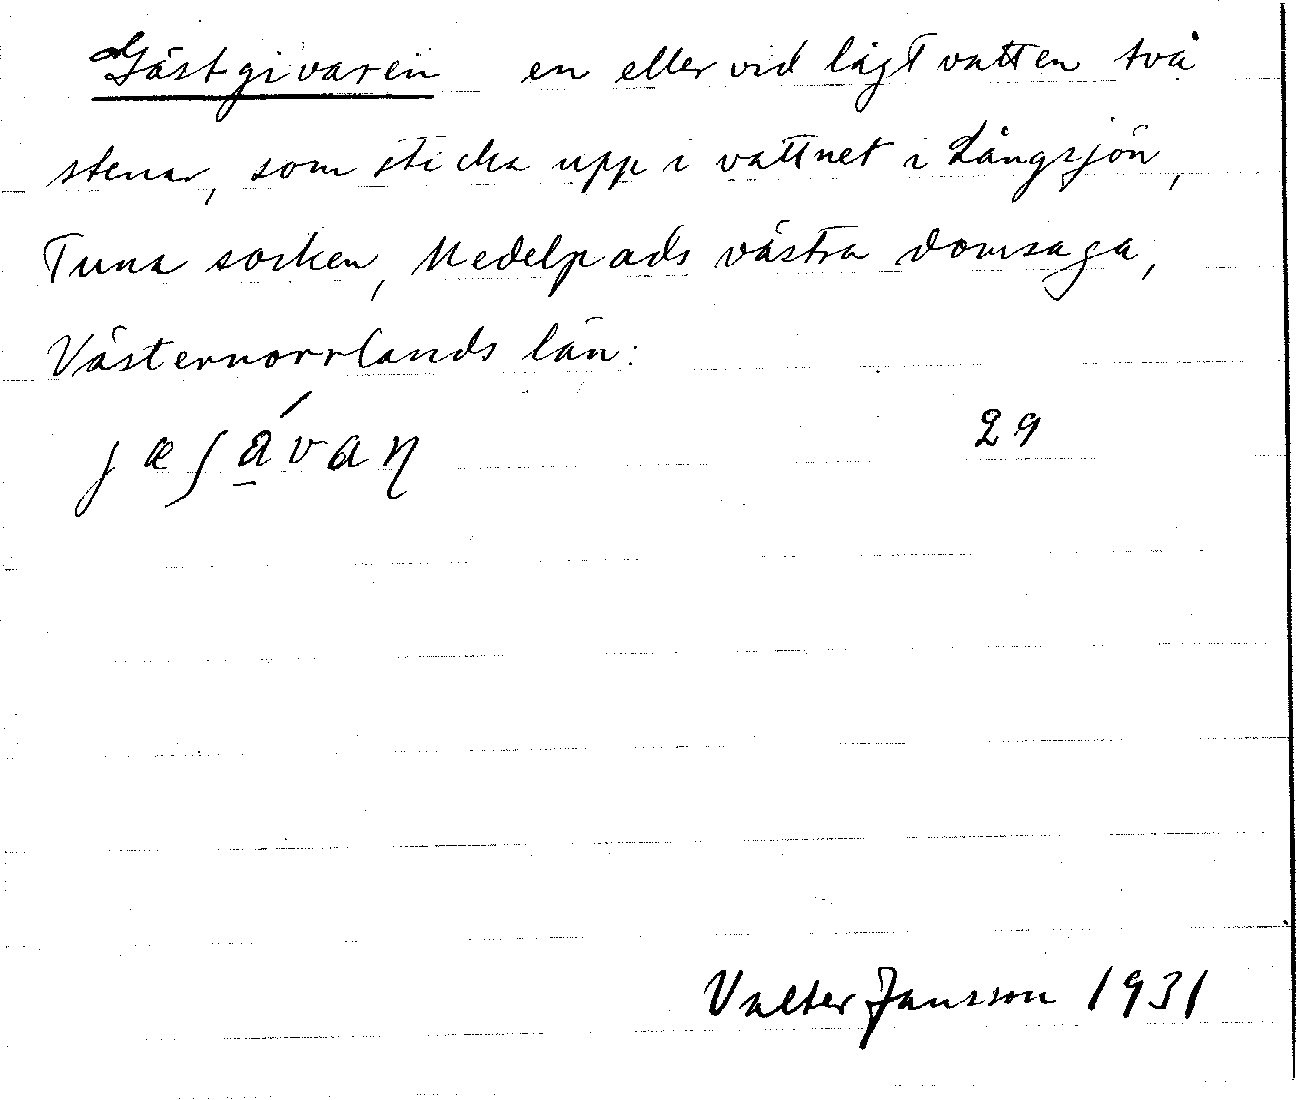 Gästgivaren en eller vid lågt vatten två
stenar, som sticka upp i vattnet i Långsjön,
Tuna socken, Medelpads västra domsaga,
Västernorrlands län:
29
Valter Jansson 1931